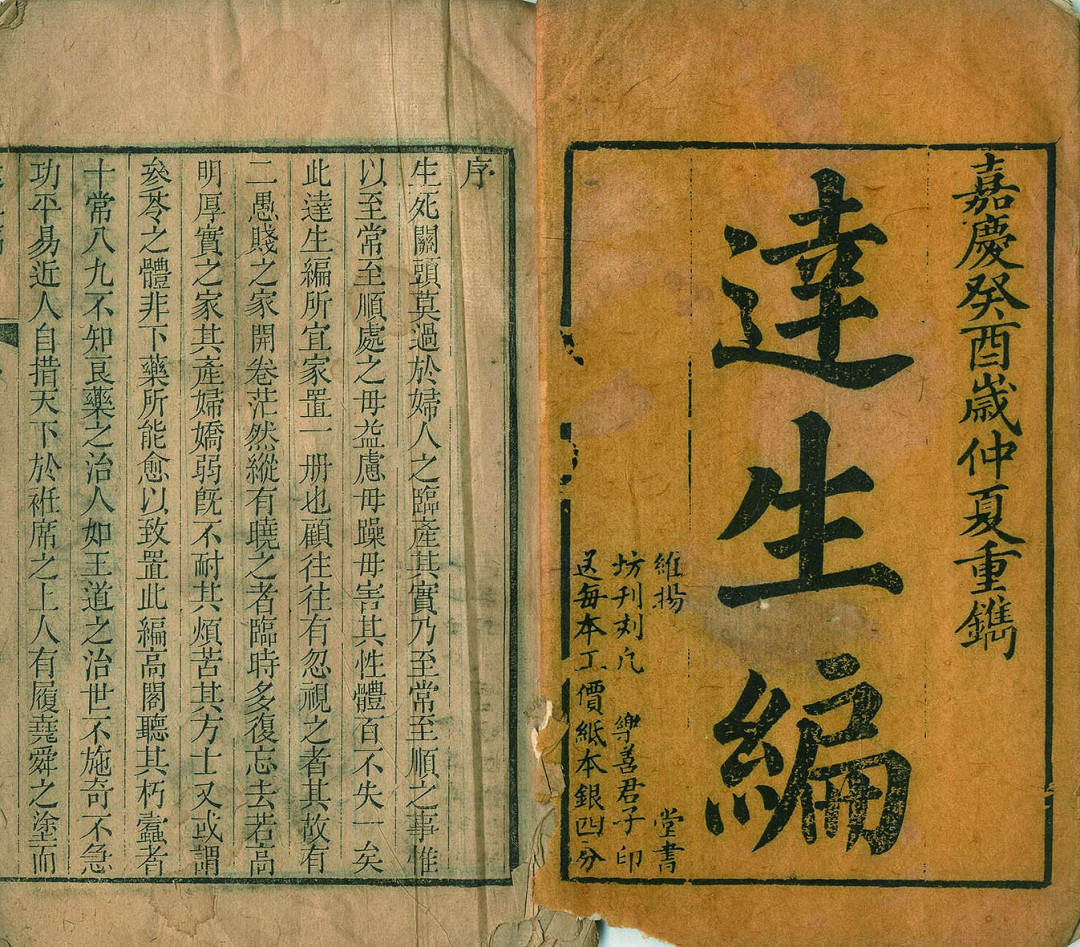 嘉慶癸酉歲仲夏重鐫
達生編
維揚 堂書
坊刊刻凡 樂善君子印
送每本工價紙本銀四分
序
生死關頭莫過於婦人之臨產其實乃至常至順之事惟
以至常至順處之毋益慮毋躁毋害其性體百不失一矣
此達生編所宜家置一册也顧往往有忽視之者其故有
二愚賤之家開卷茫然縱有曉之者臨時多復忘去若高
明厚實之家其產婦嬌弱既不耐其煩苦其方士又或謂
叅苓之體非下藥所能愈以致置此編高閣聽其朽蠹者
十常八九不知良藥之治人如王道之治世不施奇不急
功平易近人自措天下於袵席之上人有履堯舜之塗而